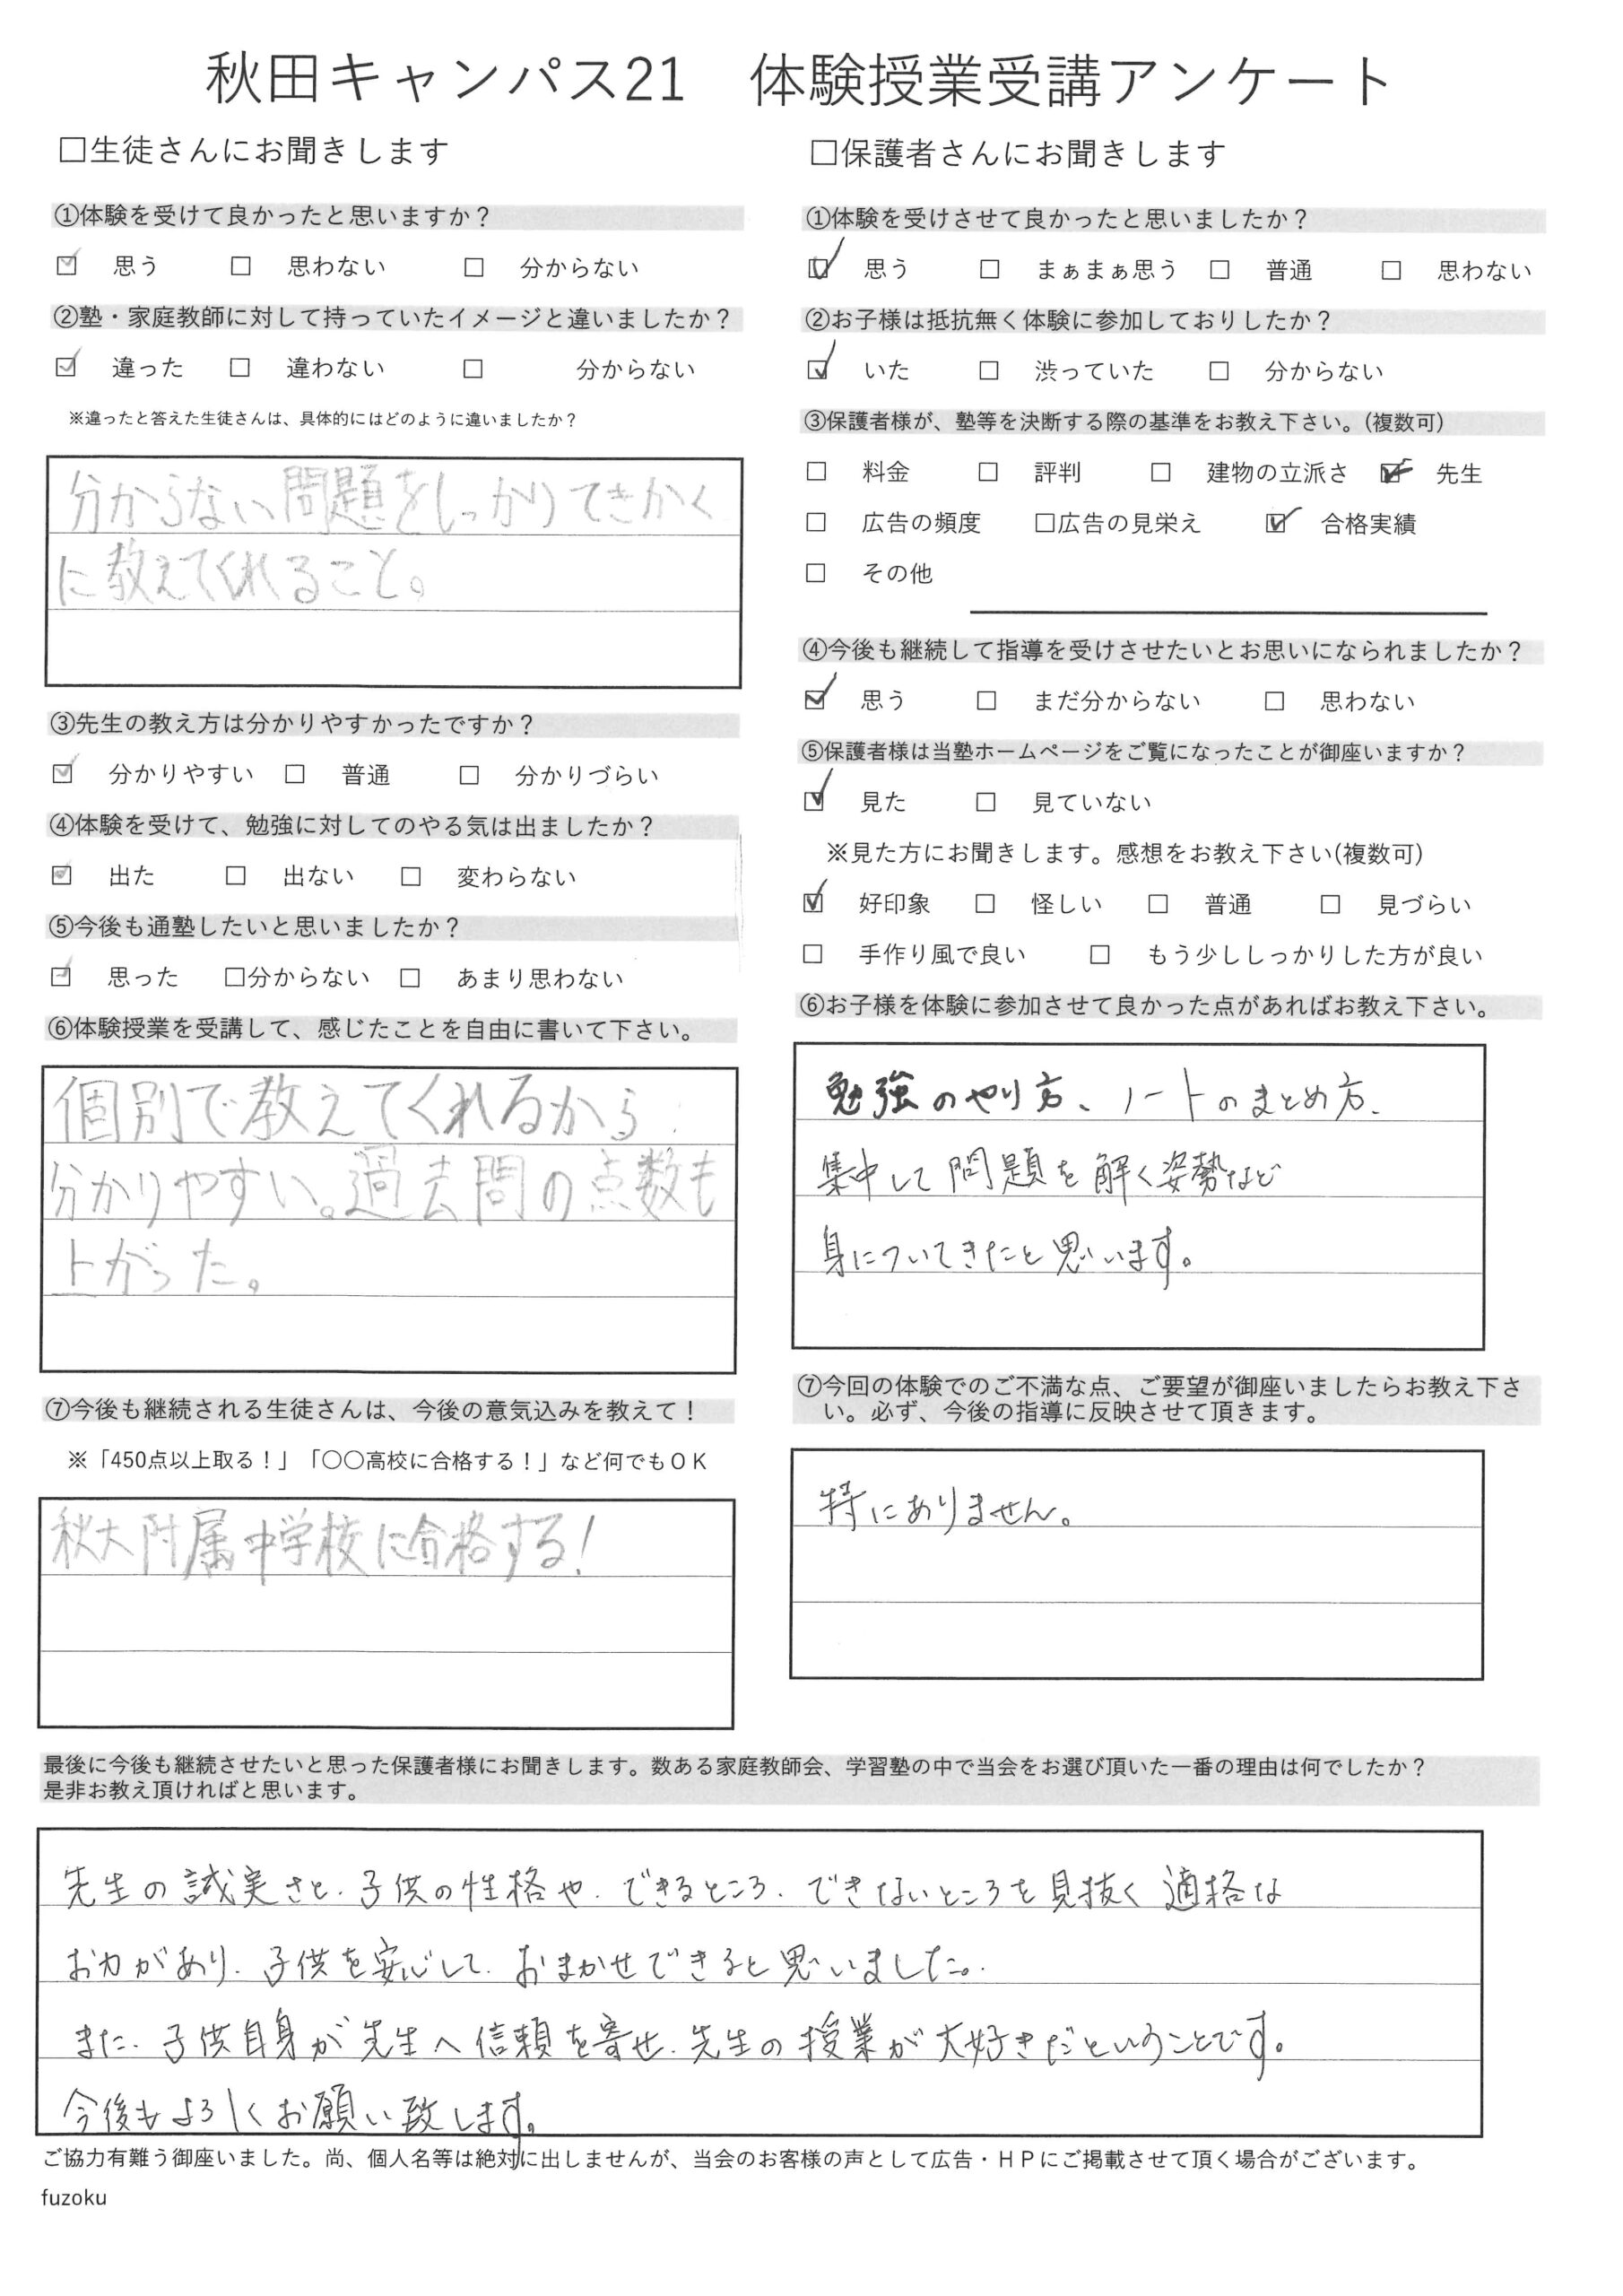 秋田キャンパス21　体験授業受講アンケート
□生徒さんにお聞きします
①体験を受けて良かったと思いますか？
☑ 思う □ 思わない □ 分からない
②塾・家庭教師に対して持っていたイメージと違いましたか？
☑ 違った □ 違わない □ 分からない
※違ったと答えた生徒さんは、具体的にはどのように違いましたか？
分からない問題をしっかりてきかく
に教えてくれること。
③先生の教え方は分かりやすかったですか？
☑ 分かりやすい □ 普通 □ 分かりづらい
④体験を受けて、勉強に対してのやる気は出ましたか？
☑ 出た □ 出ない □ 変わらない
⑤今後も通塾したいと思いましたか？
☑ 思った □分からない □ あまり思わない
⑥体験授業を受講して、感じたことを自由に書いて下さい。
個別で教えてくれるから
分かりやすい。過去問の点数も
上がった。
⑦今後も継続される生徒さんは、今後の意気込みを教えて！
※「450点以上取る！」「〇〇高校に合格する！」など何でもＯＫ
秋大附属中学校に合格する！
□保護者さんにお聞きします
①体験を受けさせて良かったと思いましたか？
☑ 思う □ まぁまぁ思う □ 普通 □ 思わない
②お子様は抵抗無く体験に参加しておりしたか？
☑ いた □ 渋っていた □ 分からない
③保護者様が、塾等を決断する際の基準をお教え下さい。(複数可)
□ 料金 □ 評判 □ 建物の立派さ ☑ 先生
□ 広告の頻度 □広告の見栄え ☑ 合格実績
□ その他
④今後も継続して指導を受けさせたいとお思いになられましたか？
☑ 思う □ まだ分からない □ 思わない
⑤保護者様は当塾ホームページをご覧になったことが御座いますか？
☑ 見た □ 見ていない
※見た方にお聞きします。感想をお教え下さい(複数可)
☑ 好印象 □ 怪しい □ 普通 □ 見づらい
□ 手作り風で良い □ もう少ししっかりした方が良い
⑥お子様を体験に参加させて良かった点があればお教え下さい。
勉強のやり方、ノートのまとめ方、
集中して問題を解く姿勢など
身についてきたと思います。
⑦今回の体験でのご不満な点、ご要望が御座いましたらお教え下さ
い。必ず、今後の指導に反映させて頂きます。
特にありません。
最後に今後も継続させたいと思った保護者様にお聞きします。数ある家庭教師会、学習塾の中で当会をお選び頂いた一番の理由は何でしたか？
是非お教え頂ければと思います。
先生の誠実さと、子供の性格や、できるところ、できないところを見抜く適格な
お力があり、子供を安心して、おまかせできると思いました。
また、子供自身が先生へ信頼を寄せ、先生の授業が大好きだということです。
今後もよろしくお願い致します。
ご協力有難う御座いました。尚、個人名等は絶対に出しませんが、当会のお客様の声として広告・ＨＰにご掲載させて頂く場合がございます。
fuzoku